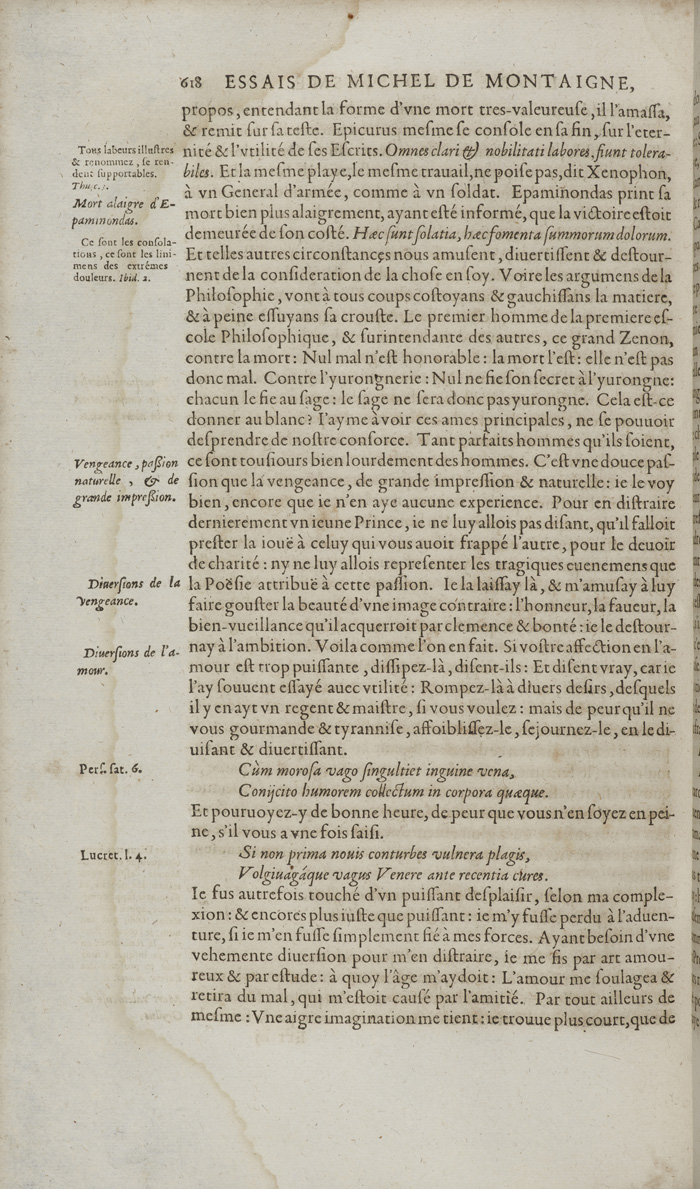 618 ESSAIS DE MICHEL DE MONTAIGNE,
propos, entendant la forme d'vne mort tres-valeureuse, il l'amassa,
& remit sur sa teste. Epicurus mesme se console en sa fin, sur l'eter-
nité & l'vtilité de ses Escrits. Omnes clari & nobilitati labores, fiunt tolera-
biles. Et la mesme playe, le mesme trauail, ne poise pas, dit Xenophon,
à vn General d'armée, comme à vn soldat. Epaminondas print sa
mort bien plus alaigrement, ayant esté informé, que la victoire estoit
demeurée de son costé. Hæc sunt solatia, hæc fomenta summorum dolorum.
Et telles autres circonstances nous amusent, diuertissent & destour-
nent de la consideration de la chose en soy. Voire les argumens de la
Philosophie, vont à tous coups costoyans & gauchissans la matiere,
& à peine essuyans sa crouste. Le premier homme de la premiere es-
cole Philosophique, & surintendante des autres, ce grand Zenon,
contre la mort: Nul mal n'est honorable: la mort l'est: elle n'est pas
donc mal. Contre l'yurongnerie: Nul ne fie son secret à l'yurongne:
chacun le fie au sage: le sage ne sera donc pas yurongne. Cela est-ce
donner au blanc? I'ayme à voir ces ames principales, ne se pouuoir
desprendre de nostre consorce. Tant parfaits hommes qu'ils soient,
ce sont tousiours bien lourdement des hommes. C'est vne douce pas-
sion que la vengeance, de grande impression & naturelle: ie le voy
bien, encore que ie n'en aye aucune experience. Pour en distraire
dernierement vn ieune Prince, ie ne luy allois pas disant, qu'il falloit
prester la iouë à celuy qui vous auoit frappé l'autre, pour le deuoir
de charité: ny ne luy allois representer les tragiques euenemens que
la Poësie attribuë à cette passion. Ie la laissay là, & m'amusay à luy
faire gouster la beauté d'vne image contraire: l'honneur, la faueur, la
bien-vueillance qu'il acquerroit par clemence & bonté: ie le destour-
nay à l'ambition. Voila comme l'on en fait. Si vostre affection en l'a-
mour est trop puissante, dissipez-là, disent-ils: Et disent vray, car ie
l'ay souuent essayé auec vtilité: Rompez-là à diuers desirs, desquels
il y en ayt vn regent & maistre, si vous voulez: mais de peur qu'il ne
vous gourmande & tyrannise, affoiblissez-le, sejournez-le, en le di-
uisant & diuertissant.
Cùm morosa vago singultiet inguine vena,
Conijcito humorem collectum in corpora quæque.
Et pouruoyez-y de bonne heure, de peur que vous n'en soyez en pei-
ne, s'il vous a vne fois saisi.
Si non prima nouis conturbes vulnera plagis,
Volgiuagáque vagus Venere ante recentia cures.
Ie fus autrefois touché d'vn puissant desplaisir, selon ma comple-
xion: & encores plus iuste que puissant: ie m'y fusse perdu à l'aduen-
ture, si ie m'en fusse simplement fié à mes forces. Ayant besoin d'vne
vehemente diuersion pour m'en distraire, ie me fis par art amou-
reux & par estude: à quoy l'âge m'aydoit: L'amour me soulagea &
retira du mal, qui m'estoit causé par l'amitié. Par tout ailleurs de
mesme: Vne aigre imagination me tient: ie trouue plus court, que de
Tous labeurs illustres
& renommez, se ren-
dent supportables.
Thuc. 1.
Mort alaigre d'E-
paminondas.
Ce sont les consola-
tions, ce sont les lini-
mens des extrémes
douleurs. Ibid. 2.
Vengeance, passion
naturelle, & de
grande impression.
Diuersions de la
vengeance.
Diuersions de l'a-
mour.
Pers. sat. 6.
Lucret. l. 4.